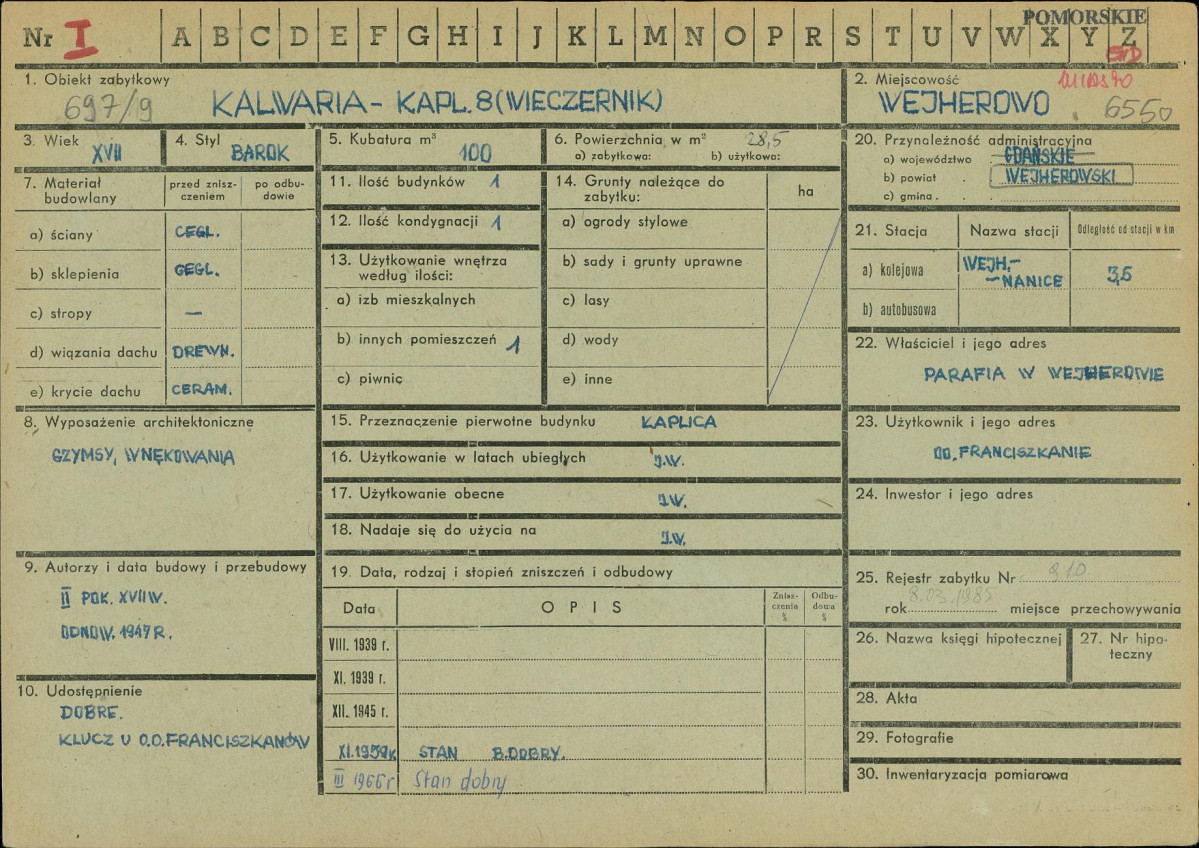 POMORSKIE
Nr I A B C D E F G H I J K L M N O P R S T U V W X Y Z
1. Obiekt zabytkowy
697/9 KALWARIA – KAPL. 8 (WIECZERNIK)
2. Miejscowość miasto
WEJHEROWO 6550
3. Wiek XVII
4. Styl BAROK
5. Kubatura m³ 100
6. Powierzchnia w m² 28,5
a) zabytkowa: b) użytkowa:
20. Przynależność administracyjna
a) województwo GDAŃSKIE
b) powiat WEJHEROWSKI
c) gmina
7. Materiał budowlany
przed znisz-
czeniem
po odbu-
dowie
a) ściany CEGL.
b) sklepienia CEGL.
c) stropy —
d) wiązania dachu DREWN.
e) krycie dachu CERAM.
11. Ilość budynków 1
12. Ilość kondygnacji 1
13. Użytkowanie wnętrza
według ilości:
a) izb mieszkalnych
b) innych pomieszczeń 1
c) piwnic
14. Grunty należące do
zabytku:
ha
a) ogrody stylowe
b) sady i grunty uprawne
c) lasy
d) wody
e) inne
21. Stacja Nazwa stacji Odległość od stacji w km
a) kolejowa WEJH.–
–NANICE 3,5
b) autobusowa
22. Właściciel i jego adres
PARAFIA W WEJHEROWIE
8. Wyposażenie architektoniczne
GZYMSY, WNĘKOWANIA
15. Przeznaczenie pierwotne budynku KAPLICA
16. Użytkowanie w latach ubiegłych J.W.
17. Użytkowanie obecne J.W.
18. Nadaje się do użycia na J.W.
23. Użytkownik i jego adres
OO. FRANCISZKANIE
24. Inwestor i jego adres
9. Autorzy i data budowy i przebudowy
II POŁ. XVII W.
ODNOW. 1947 R.
10. Udostępnienie
DOBRE.
KLUCZ U O.O. FRANCISZKANÓW
19. Data, rodzaj i stopień zniszczeń i odbudowy
Data OPIS
Znisz-
czenia
%
Odbu-
dowa
%
VIII. 1939 r.
XI. 1939 r.
XII. 1945 r.
XI. 1959 R STAN B. DOBRY.
III 1966 r Stan dobry
25. Rejestr zabytku Nr 910
rok 8.03.1985 miejsce przechowywania
26. Nazwa księgi hipotecznej
27. Nr hipo-
teczny
28. Akta
29. Fotografie
30. Inwentaryzacja pomiarowa